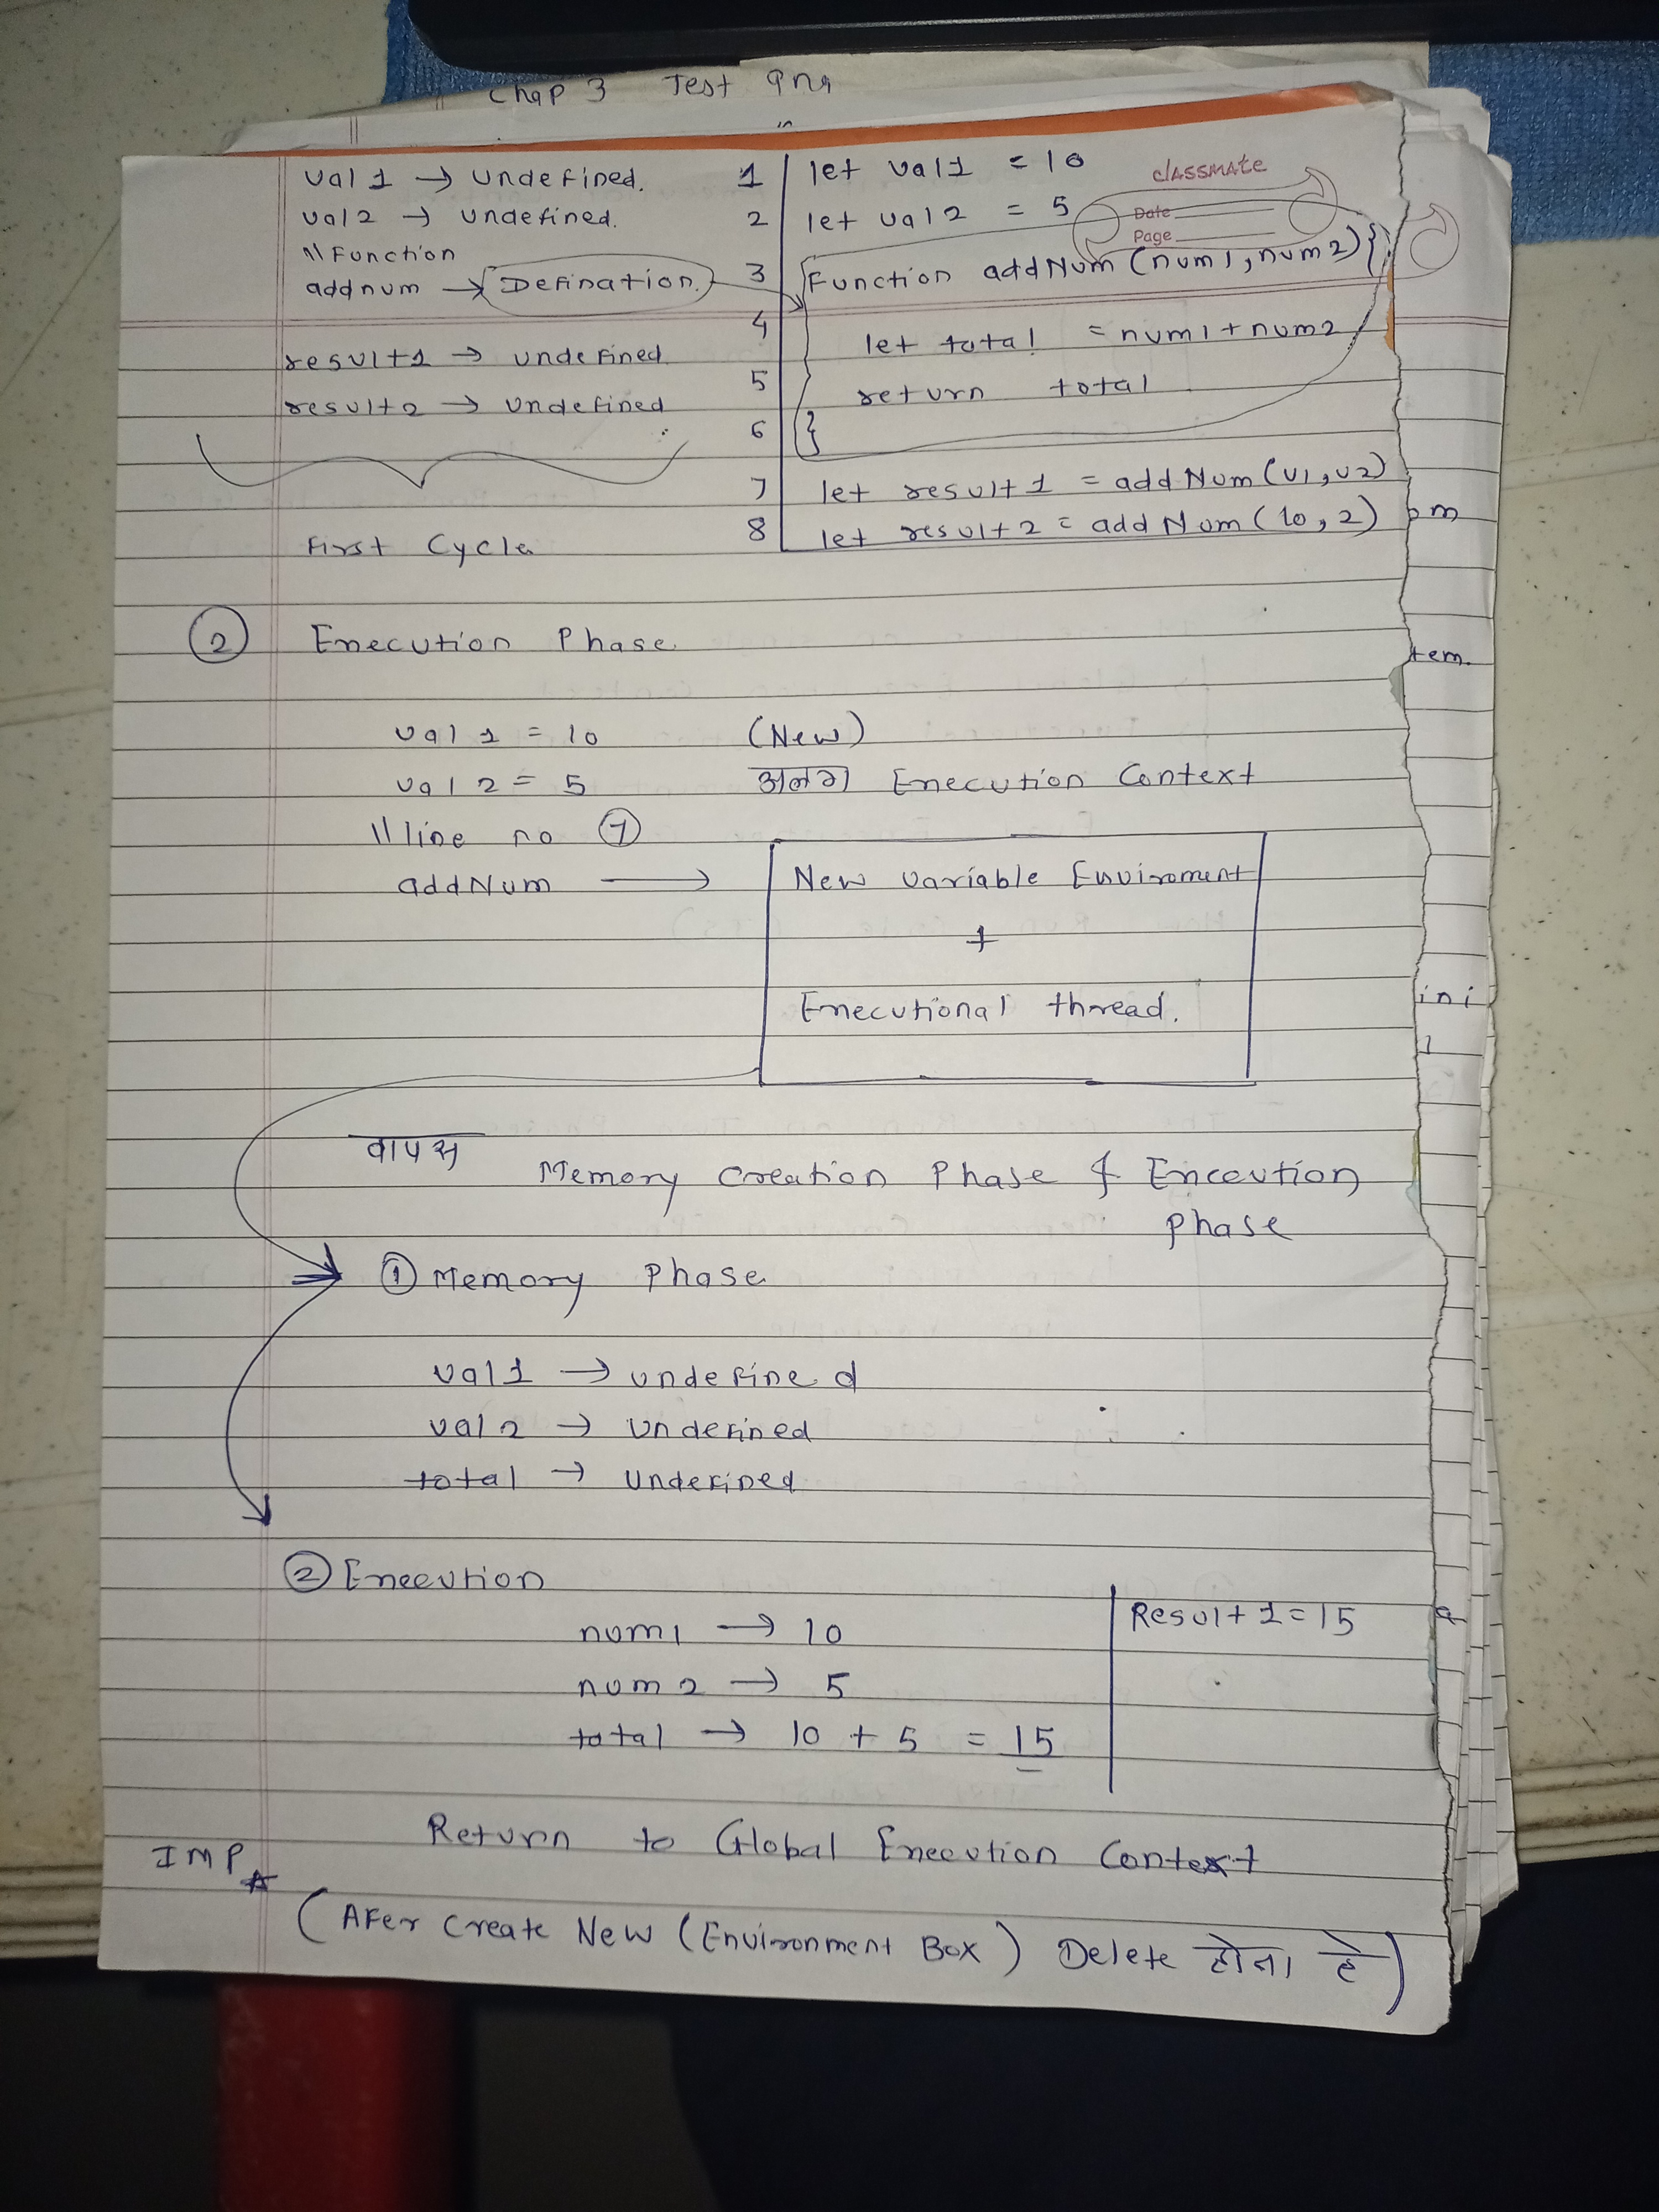 Chap 3 Test qns
classmate
Date
Page
val 1 → undefined.
val 2 → undefined.
\\ Function
addnum → Defination.
result1 → undefined
result2 → undefined
First Cycle
1 let val1 = 10
2 let val2 = 5
3 Function addNum (num1, num2) {
4 let total = num1 + num2
5 return total
6 }
7 let result 1 = addNum (v1, v2)
8 let result 2 = addNum (10, 2)
② Execution Phase
val 1 = 10 (New)
val 2 = 5 अलग Execution Context
\\ line no ⑦
addNum → New variable Enviroment
+
Executional thread.
वापस
Memory Creation Phase & Exceution
phase
① Memory Phase
val1 → undefined
val2 → undefined
total → undefined
② Execution
num1 → 10
num2 → 5
total → 10 + 5 = 15
Result 1 = 15
Return to Global Execution Context
IMP
(AFer create New (Environment Box) Delete होता है)
tem.
ini